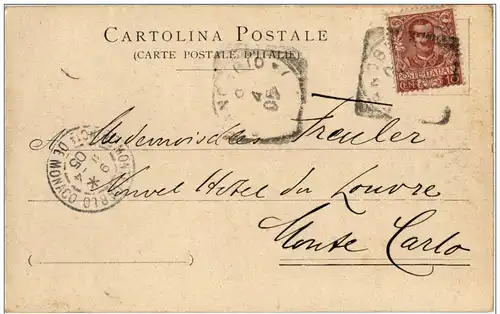 CARTOLINA POSTALE
(CARTE POSTALE D'ITALIE)
POSTE ITALIANE
CENT. 10
4
05
Mesdemoiselles Freuler
Nouvel Hotel du Louvre
Monte Carlo
MONTE CARLO
PTE DE MONACO
05